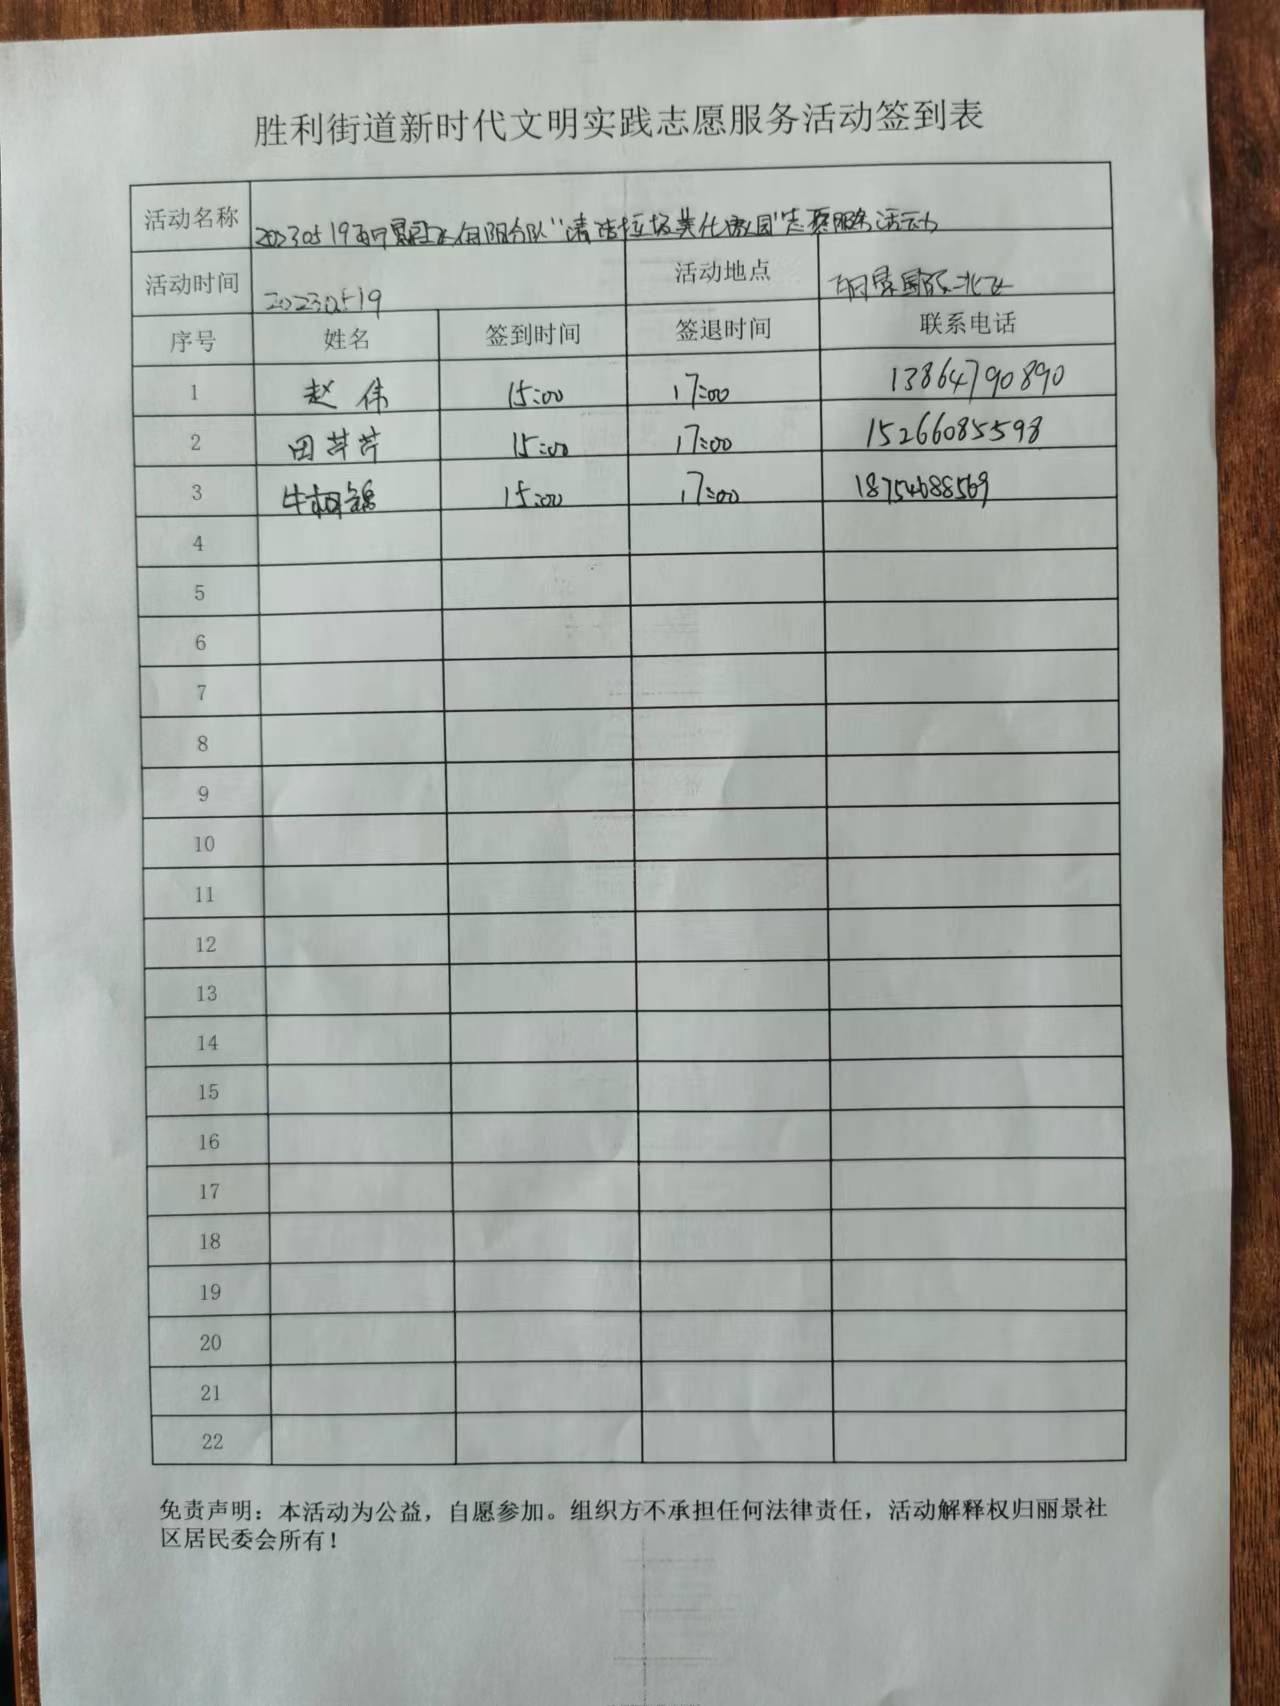 胜利街道新时代文明实践志愿服务活动签到表
活动名称 20230519 向阳分队“清洁垃圾美化家园”志愿服务活动
活动时间 20230519 活动地点 国际北区
序号 姓名 签到时间 签退时间 联系电话
1 赵伟 15:00 17:00 13864790890
2 田芹芹 15:00 17:00 15266085598
3 牛 15:00 17:00 18754688569
4
5
6
7
8
9
10
11
12
13
14
15
16
17
18
19
20
21
22
免责声明：本活动为公益，自愿参加。组织方不承担任何法律责任，活动解释权归丽景社
区居民委会所有！